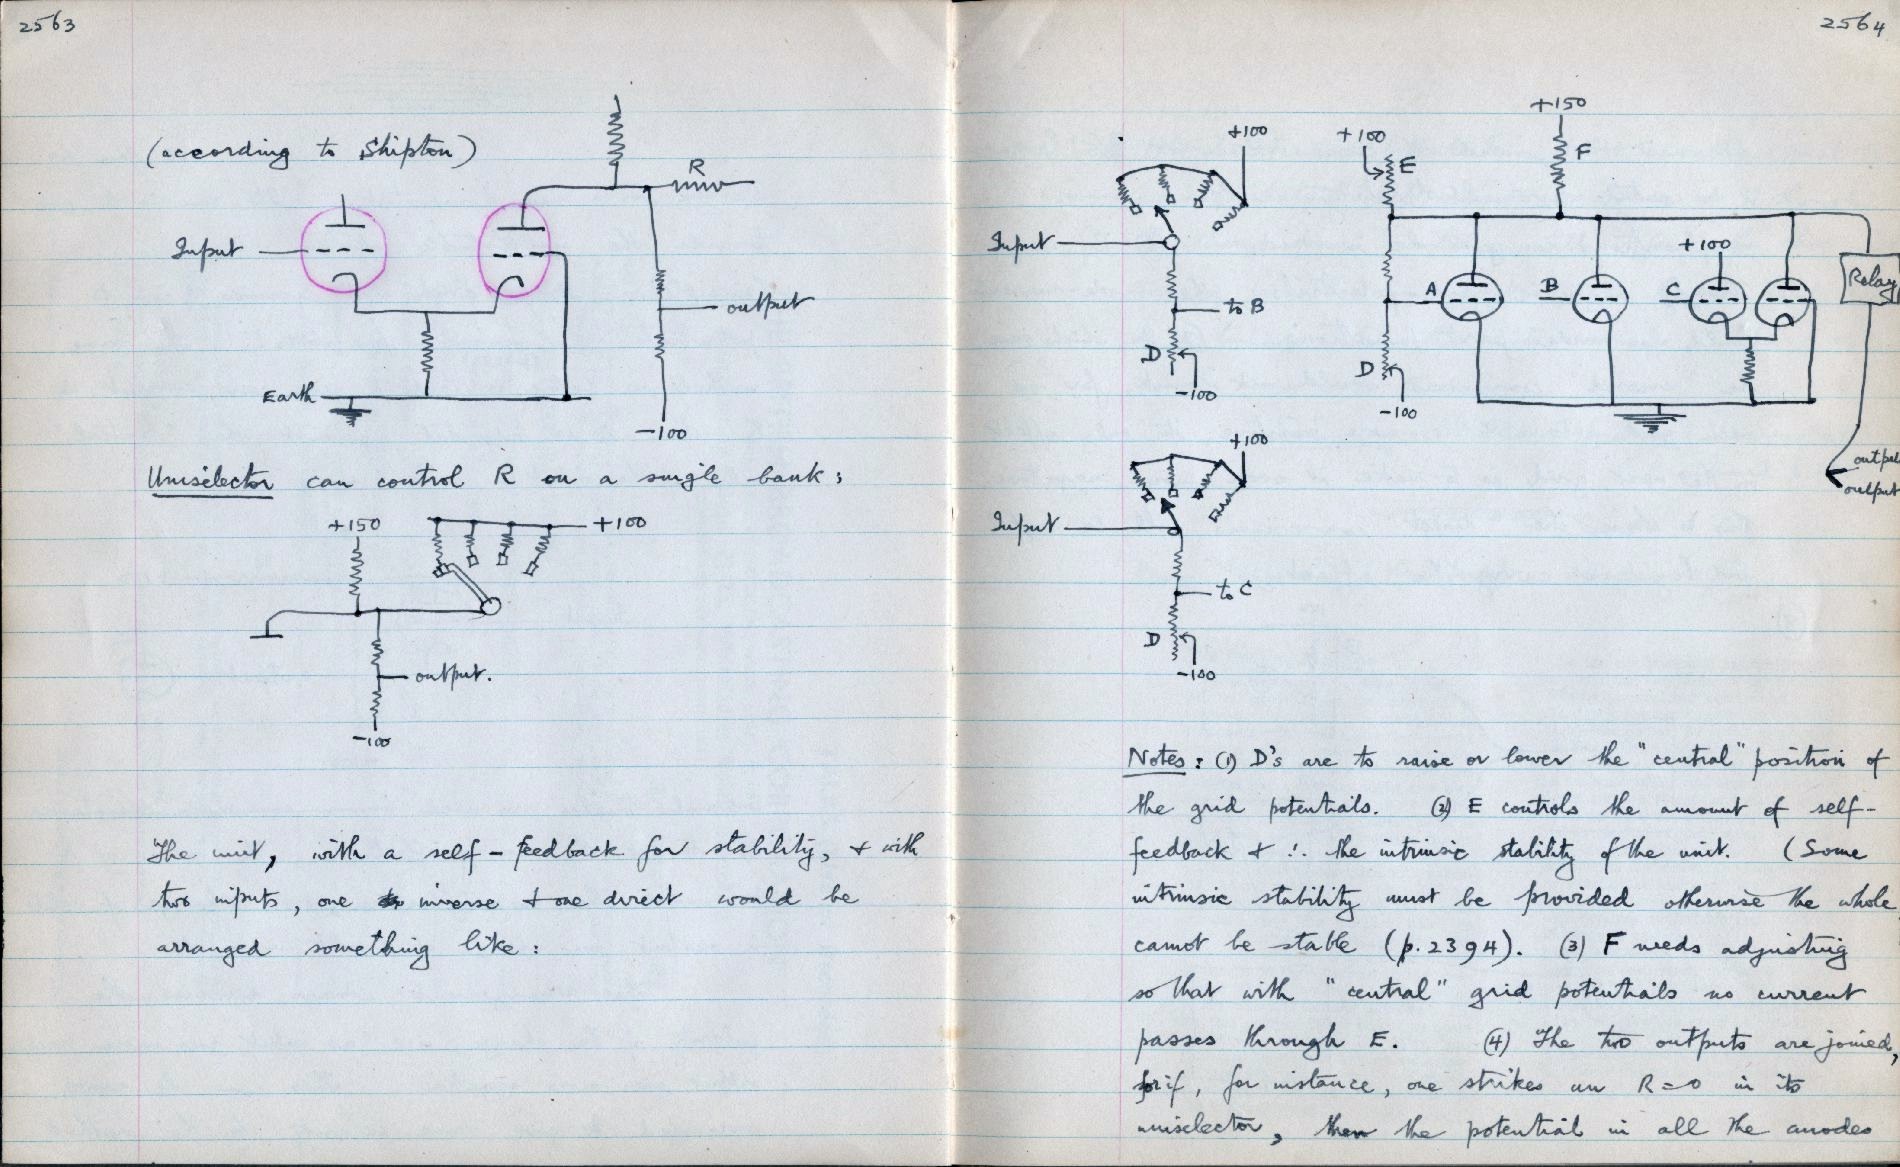 2563
(according to Shipton)
R
Input
output
Earth
-100
Uniselector can control R on a single bank:
+150
+100
output.
-100
The unit, with a self-feedback for stability, & with
two inputs, one inverse & one direct would be
arranged something like:
2564
+150
+100
+100
E
F
Input
+100
Relay
A
B
C
to B
D
-100
D
-100
+100
output
output
Input
to C
D
-100
Notes: (1) D's are to raise or lower the "central" position of
the grid potentials. (2) E controls the amount of self-
feedback & ∴ the intrinsic stability of the unit. (Some
intrinsic stability must be provided otherwise the whole
cannot be stable (p.2394). (3) F needs adjusting
so that with "central" grid potentials no current
passes through E. (4) The two outputs are joined,
for if, for instance, one strikes an R=0 in its
uniselector, then the potential in all the anodes